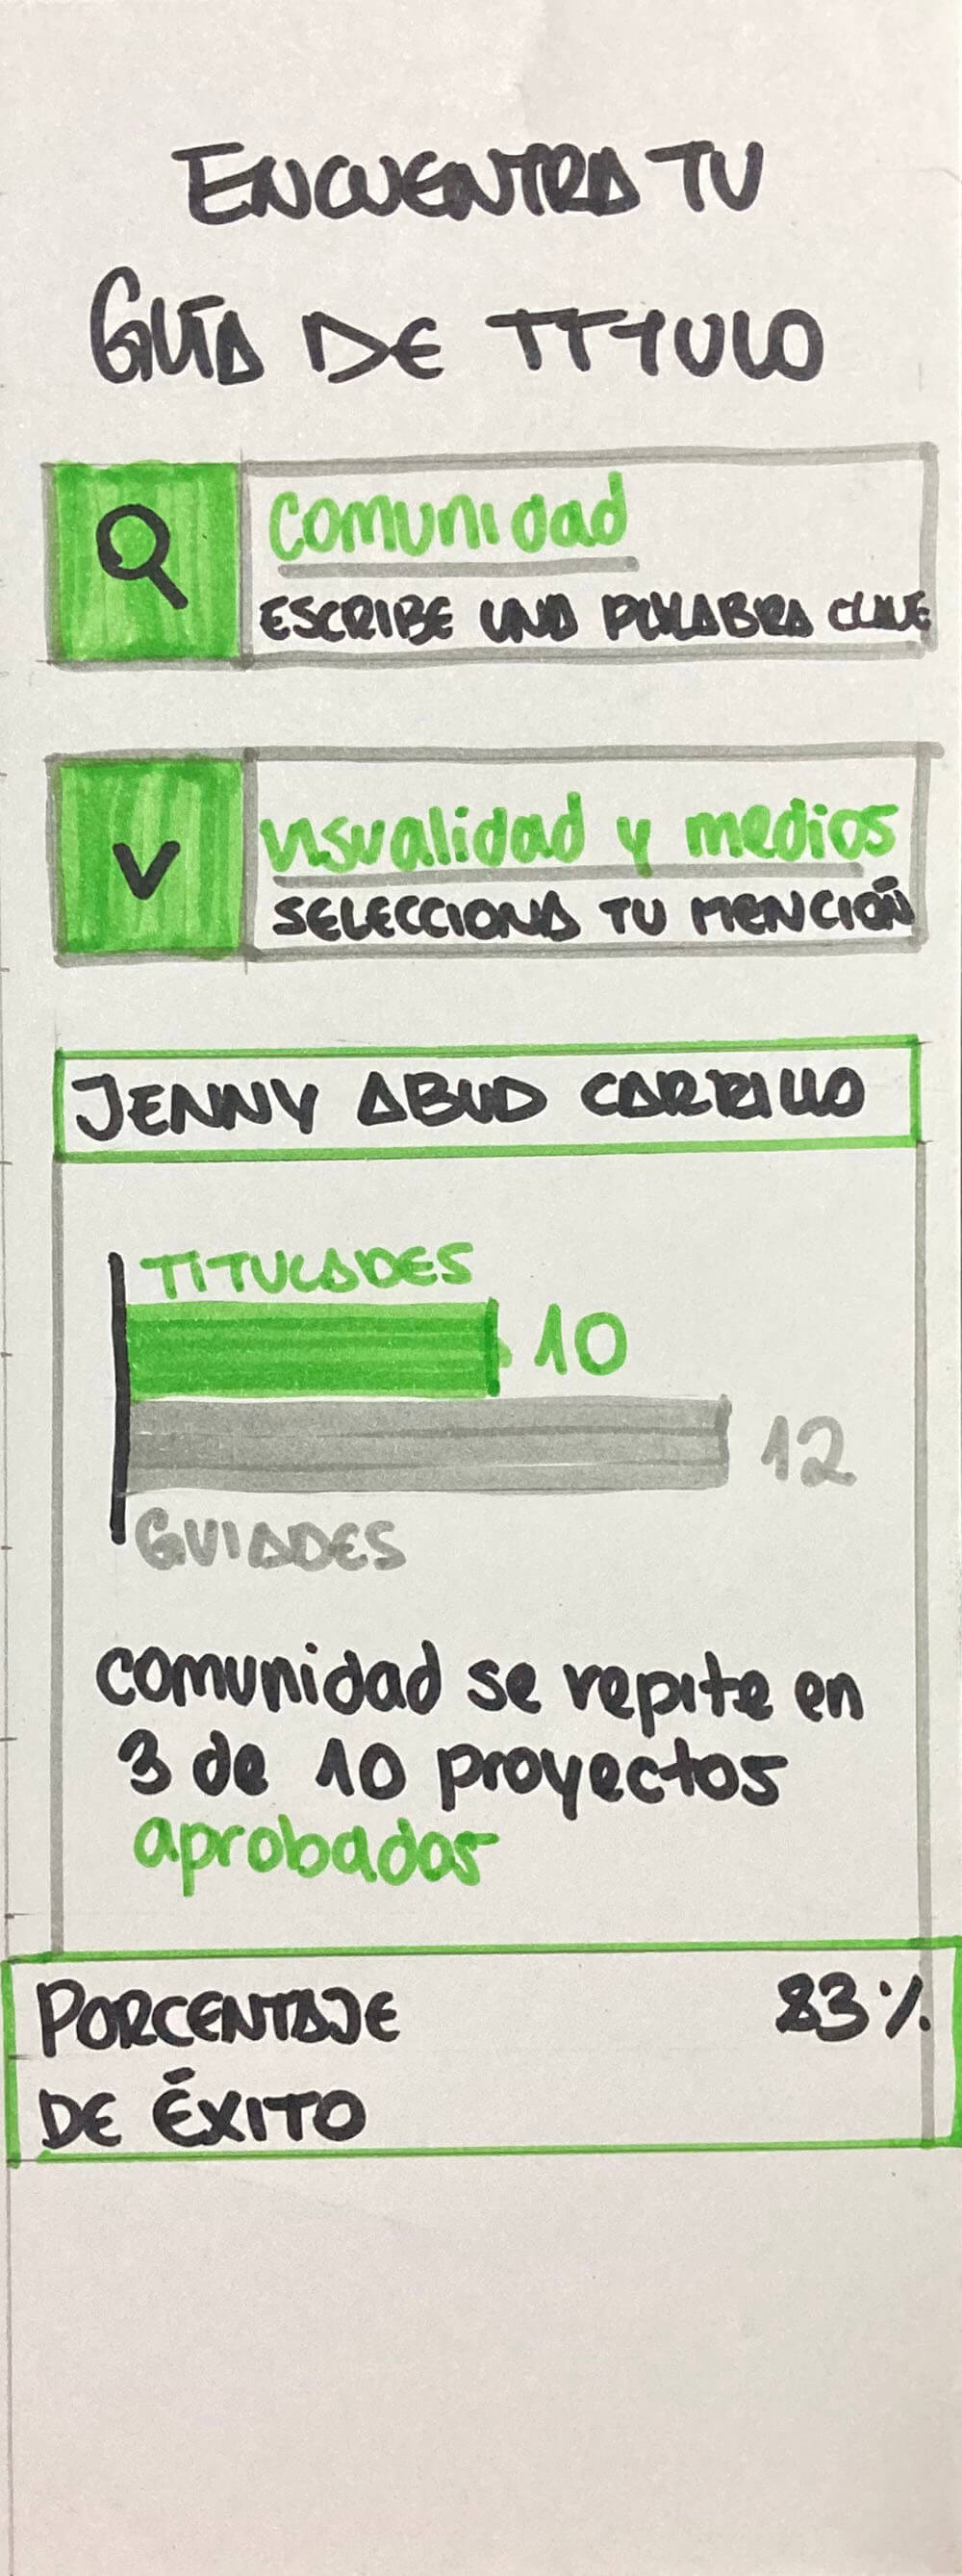 ENCUENTRA TU
GUÍA DE TÍTULO
comunidad
ESCRIBE UNA PALABRA CLAVE
visualidad y medios
SELECCIONA TU MENCIÓN
JENNY ABUD CARRILLO
TITULADES
10
12
GUIADES
comunidad se repite en
3 de 10 proyectos
aprobados
PORCENTAJE 83%
DE ÉXITO